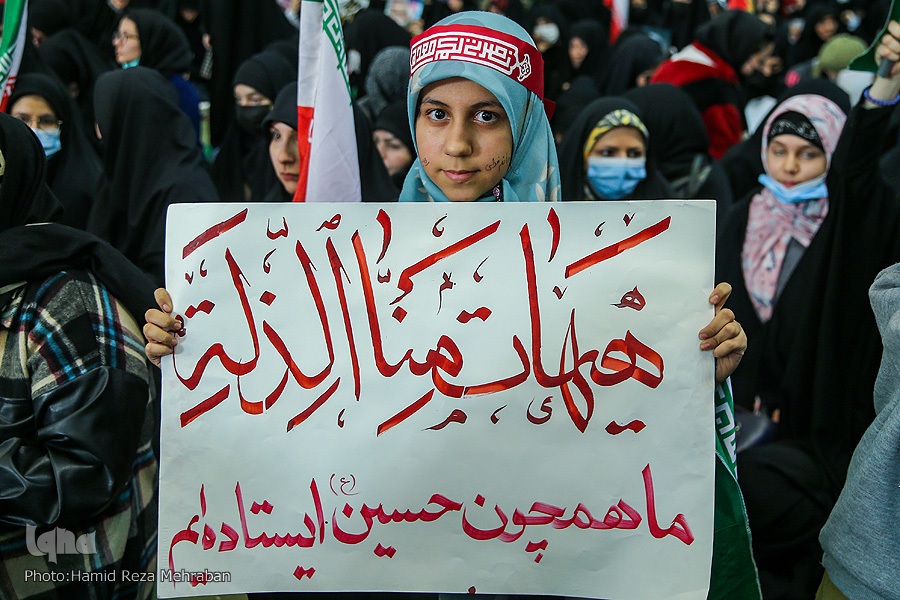 هیهات منا الذلة
ما همچون حسین (ع) ایستاده ایم
iqna
Photo:Hamid Reza Mehraban